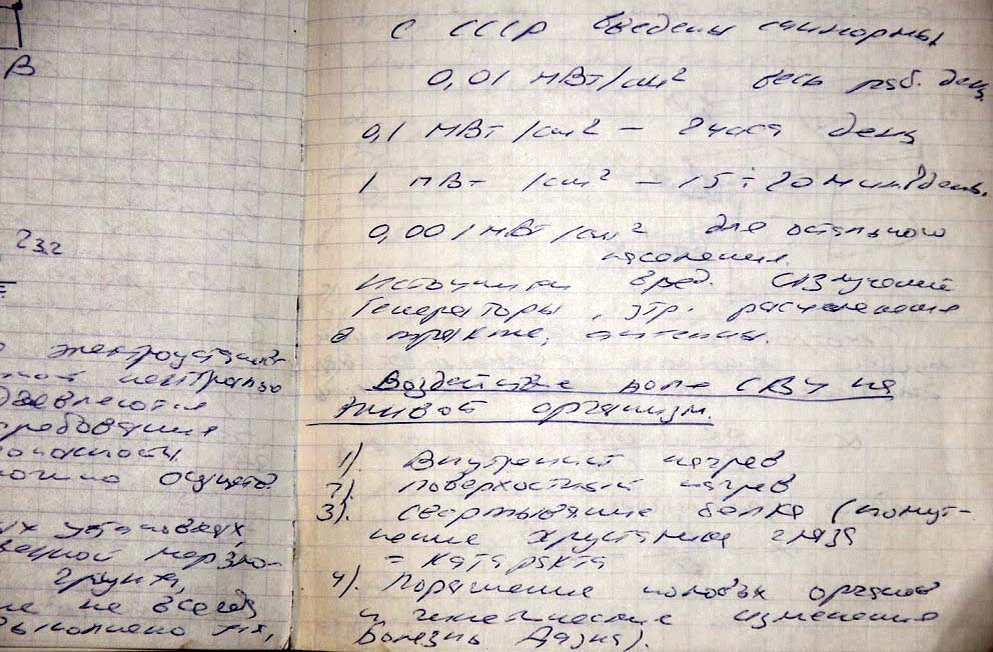 В
232
электроустан
нейтралью
являются
требования
опасности
осуществ.
ых установках
мерзло-
грунта,
не всегда
выполнено
С СССР введены саннормы
0,01 мВт/см² весь раб. день
0,1 мВт/см² – 2 часа день
1 мВт/см² – 15÷20 мин в день.
0,001 мВт/см² для остального
населения.
Источники вред. излучений
Генераторы, устр.
в тракте, антенны.
Воздействие поля СВЧ на
живой организм.
1). Внутренний нагрев
2). Поверхостный нагрев
3). Свертывание белка (помут-
нение хрусталика глаза
= катаракта
4). Поражение половых органов
и генетические изменения
болезнь Дауна).